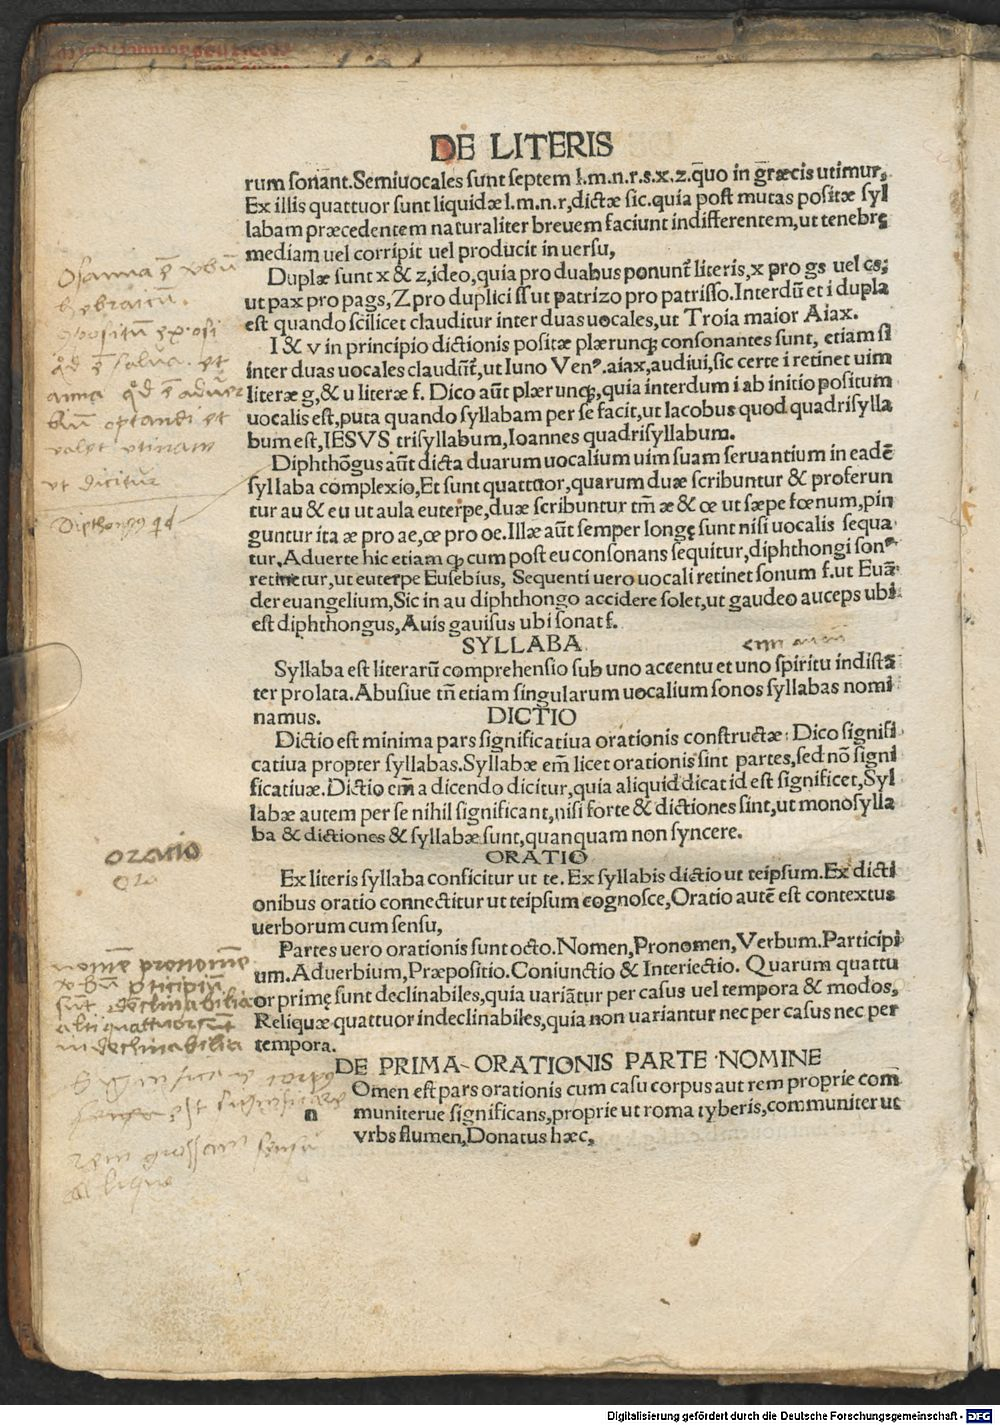 DE LITERIS
rum sonant. Semiuocales sunt septem l.m.n.r.s.x.z. q̄uo in græcis utimur,
Ex illis quattuor sunt liquidæ l.m.n.r, dictæ sic. quia post mutas positæ syl
labam præcedentem naturaliter breuem faciunt indifferentem, ut tenebrę
mediam uel corripit uel producit in uersu,
Duplæ sunt x & z, ideo, quia pro duabus ponunt᷑ literis, x pro gs uel cs;
ut pax pro pags, Z pro duplici ſſ ut patrizo pro patriſſo. Interdū et i dupla
est quando scilicet clauditur inter duas uocales, ut Troia maior Aiax.
I & v in principio dictionis positæ plærunq; consonantes sunt, etiam si
inter duas uocales claudūt᷑, ut Iuno Venꝰ. aiax, audiui, sic certe i retinet uim
literæ g, & u literæ f. Dico aūt plærunq;, quia interdum i ab initio positum
uocalis est, puta quando syllabam per se facit, ut Iacobus quod quadrisylla
bum est, IESVS trisyllabum, Ioannes quadrisyllabum.
Diphthōgus aūt dicta duarum uocalium uim suam seruantium in eadē
syllaba complexio, Et sunt quattuor, quarum duæ scribuntur & proferun
tur au & eu ut aula euterpe, duæ scribuntur tm̄ æ & œ ut sæpe fœnum, pin
guntur ita æ pro ae, œ pro oe. Illæ aūt semper longę sunt nisi uocalis sequa
tur. Aduerte hic etiam ꝙ cum post eu consonans sequitur, diphthongi sonꝰ
retinetur, ut euterpe Eusebius, Sequenti uero uocali retinet sonum f. ut Euā
der euangelium, Sic in au diphthongo accidere solet, ut gaudeo auceps ubi
est diphthongus, Auis gauisus ubi sonat f.
SYLLABA
Syllaba est literarū comprehensio sub uno accentu et uno spiritu indistā
ter prolata. Abusiue tn̄ etiam singularum uocalium sonos syllabas nomi
namus. DICTIO
Dictio est minima pars significatiua orationis constructæ: Dico signifi
catiua propter syllabas. Syllabæ em̄ licet orationis sint partes, sed nō signi
ficatiuæ. Dictio em̄ a dicendo dicitur, quia aliquid dicat id est significet, Syl
labæ autem per se nihil significant, nisi forte & dictiones sint, ut monosylla
ba & dictiones & syllabæ sunt, quanquam non syncere.
ORATIO
Ex literis syllaba conficitur ut te. Ex syllabis dictio ut teipsum. Ex dicti
onibus oratio connectitur ut teipsum cognosce, Oratio autē est contextus
uerborum cum sensu,
Partes uero orationis sunt octo. Nomen, Pronomen, Verbum. Participi
um. Aduerbium, Præpositio. Coniunctio & Interiectio. Quarum quattu
or primę sunt declinabiles, quia variātur per casus uel tempora & modos,
Reliquæ quattuor indeclinabiles, quia non uariantur nec per casus nec per
tempora.
DE PRIMA ORATIONIS PARTE NOMINE
n Omen est pars orationis cum casu corpus aut rem proprie com
muniterue significans, proprie ut roma tyberis, communiter ut
vrbs flumen, Donatus hæc,
Osanna ē vbū
hebraicū.
anna qd ē aduer
biū optandi et
valet utinam
ut dicitur
oratio
Ora
nomē pronomē
vbū pticipiū
sūt declinabilia
alii quattuor sūt
indeclinabilia
Digitalisierung gefördert durch die Deutsche Forschungsgemeinschaft - DFG